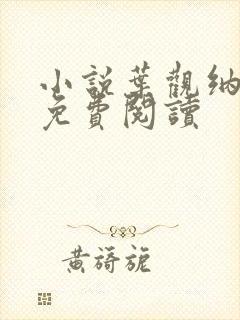 小說葉觀納
免費閱讀
黃旖旎